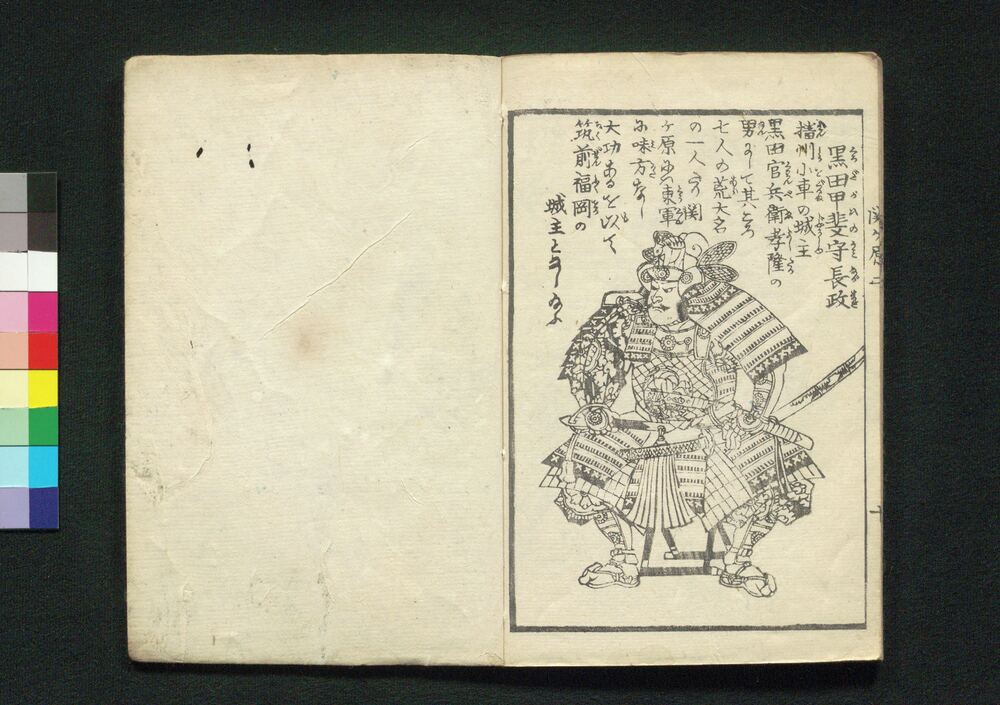 黒田甲斐守長政
播州小車の城主
黒田官兵衛孝隆の
男にして其ころ
七人の荒大名
の一人なり関
ヶ原の東軍
に味方なし
大功あるを以て
筑前福岡の
城主となしたまふ
関ヶ原二
一